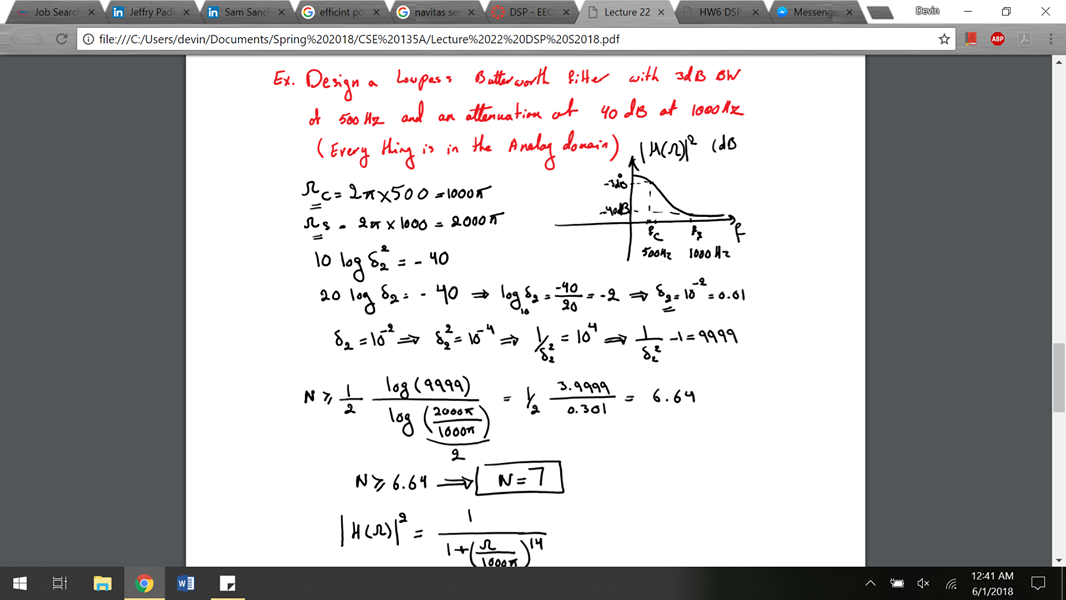 Job Search
Jeffry Pad
Sam Sanc
efficint po
navitas se
DSP - EEC
Lecture 22
HW6 DSP
Messenge
Devin
file:///C:/Users/devin/Documents/Spring%202018/CSE%20135A/Lecture%2022%20DSP%20S2018.pdf
ABP
Ex. Design a Lowpass Butterworth filter with 3dB BW
of 500 Hz and an attenuation of 40 dB at 1000 Hz
(Every thing is in the Analog domain)
|H(Ω)|² (dB
0
-3dB
-40dB
fc
fs
f
500Hz 1000 Hz
Ωc = 2π×500 = 1000π
Ωs = 2π × 1000 = 2000π
10 log δ₂² = - 40
20 log δ₂ = - 40 ⇒ log₁₀ δ₂ = -40/20 = -2 ⇒ δ₂ = 10⁻² = 0.01
δ₂ = 10⁻² ⇒ δ₂² = 10⁻⁴ ⇒ 1/δ₂² = 10⁴ ⇒ 1/δ₂² -1 = 9999
N ≥ 1/2 log(9999)/log(2000π/1000π) = 1/2 3.9999/0.301 = 6.64
2
N ≥ 6.64 ⇒ N = 7
|H(Ω)|² = 1/1+(Ω/1000π)¹⁴
12:41 AM
6/1/2018